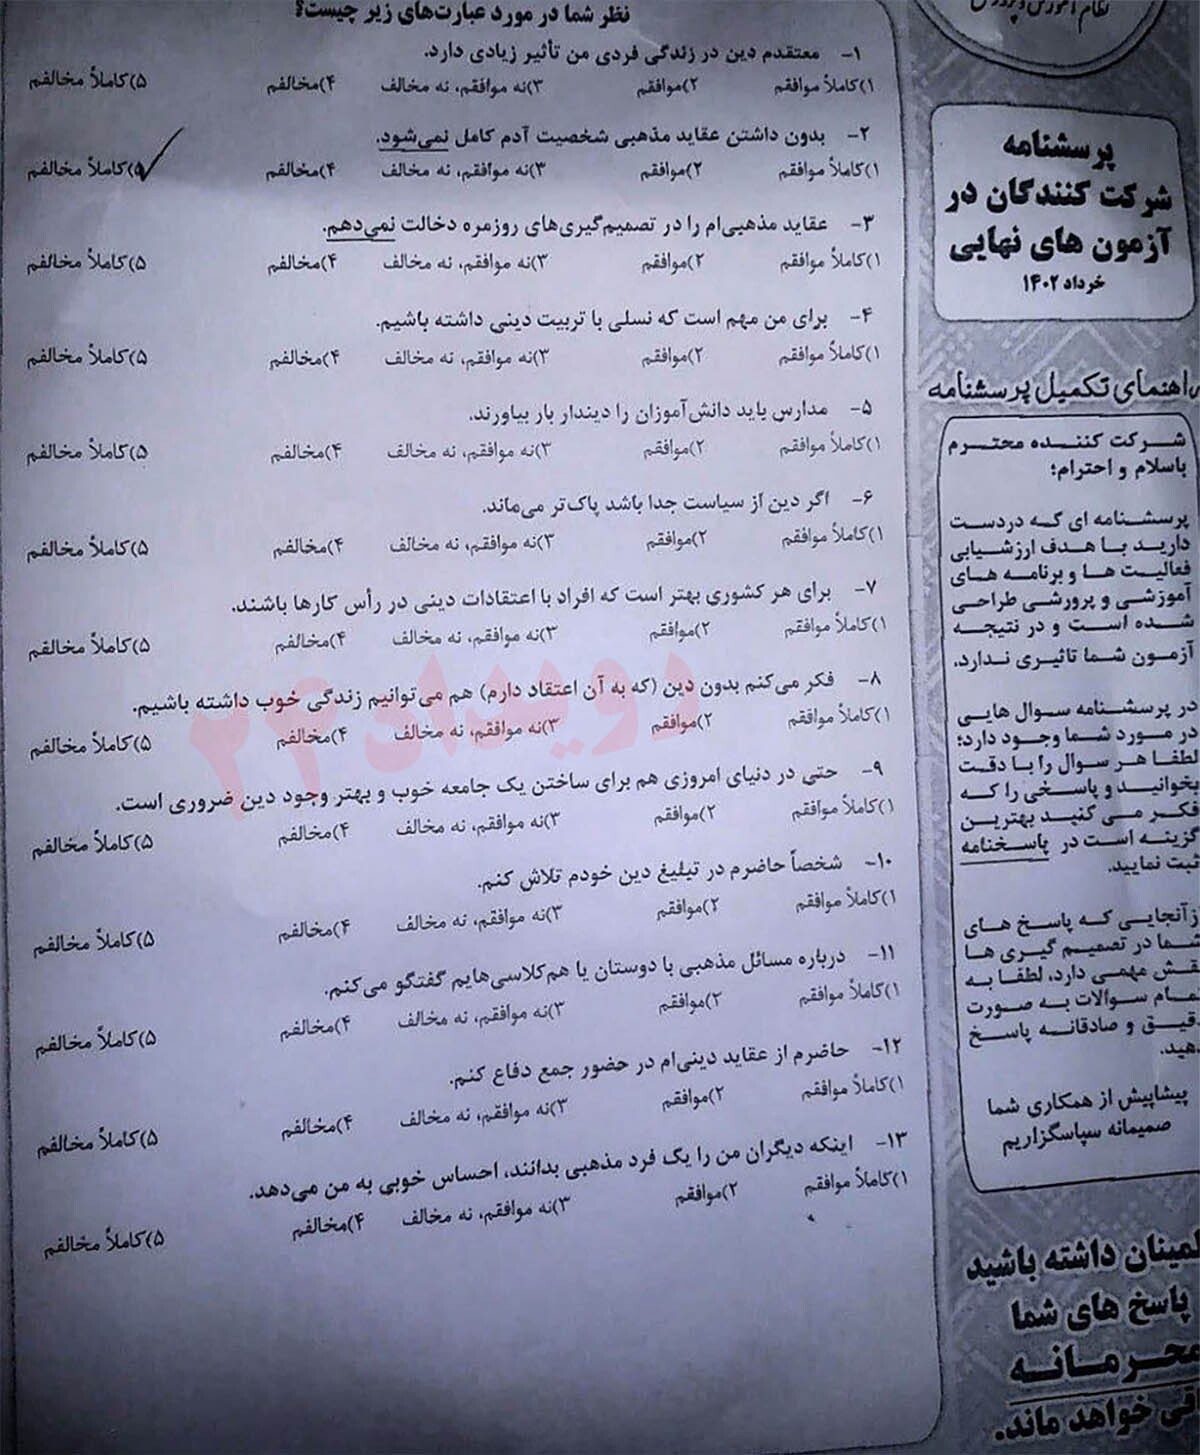 نظام آموزش و پرورش
پرسشنامه
شرکت کنندگان در
آزمون های نهایی
خرداد ۱۴۰۲
راهنمای تکمیل پرسشنامه
شرکت کننده محترم
باسلام و احترام؛
پرسشنامه ای که دردست
دارید با هدف ارزشیابی
فعالیت ها و برنامه های
آموزشی و پرورشی طراحی
شده است و در نتیجه
آزمون شما تاثیری ندارد.
در پرسشنامه سوال هایی
در مورد شما وجود دارد؛
لطفا هر سوال را با دقت
بخوانید و پاسخی را که
فکر می کنید بهترین
گزینه است در پاسخنامه
ثبت نمایید.
زآنجایی که پاسخ های
شما در تصمیم گیری ها
نقش مهمی دارد، لطفا به
تمام سوالات به صورت
دقیق و صادقانه پاسخ
دهید.
پیشاپیش از همکاری شما
صمیمانه سپاسگزاریم
اطمینان داشته باشید
پاسخ های شما
محرمانه
باقی خواهد ماند.
نظر شما در مورد عبارت‌های زیر چیست؟
۱- معتقدم دین در زندگی فردی من تأثیر زیادی دارد.
۱)کاملاً موافقم ۲)موافقم ۳)نه موافقم، نه مخالف ۴)مخالفم ۵)کاملاً مخالفم
۲- بدون داشتن عقاید مذهبی شخصیت آدم کامل نمی‌شود.
۱)کاملاً موافقم ۲)موافقم ۳)نه موافقم، نه مخالف ۴)مخالفم ۵)کاملاً مخالفم
۳- عقاید مذهبی‌ام را در تصمیم‌گیری‌های روزمره دخالت نمی‌دهم.
۱)کاملاً موافقم ۲)موافقم ۳)نه موافقم، نه مخالف ۴)مخالفم ۵)کاملاً مخالفم
۴- برای من مهم است که نسلی با تربیت دینی داشته باشیم.
۱)کاملاً موافقم ۲)موافقم ۳)نه موافقم، نه مخالف ۴)مخالفم ۵)کاملاً مخالفم
۵- مدارس باید دانش‌آموزان را دیندار بار بیاورند.
۱)کاملاً موافقم ۲)موافقم ۳)نه موافقم، نه مخالف ۴)مخالفم ۵)کاملاً مخالفم
۶- اگر دین از سیاست جدا باشد پاک‌تر می‌ماند.
۱)کاملاً موافقم ۲)موافقم ۳)نه موافقم، نه مخالف ۴)مخالفم ۵)کاملاً مخالفم
۷- برای هر کشوری بهتر است که افراد با اعتقادات دینی در رأس کارها باشند.
۱)کاملاً موافقم ۲)موافقم ۳)نه موافقم، نه مخالف ۴)مخالفم ۵)کاملاً مخالفم
۸- فکر می‌کنم بدون دین (که به آن اعتقاد دارم) هم می‌توانیم زندگی خوب داشته باشیم.
۱)کاملاً موافقم ۲)موافقم ۳)نه موافقم، نه مخالف ۴)مخالفم ۵)کاملاً مخالفم
رویداد۲۴
۹- حتی در دنیای امروزی هم برای ساختن یک جامعه خوب و بهتر وجود دین ضروری است.
۱)کاملاً موافقم ۲)موافقم ۳)نه موافقم، نه مخالف ۴)مخالفم ۵)کاملاً مخالفم
۱۰- شخصاً حاضرم در تبلیغ دین خودم تلاش کنم.
۱)کاملاً موافقم ۲)موافقم ۳)نه موافقم، نه مخالف ۴)مخالفم ۵)کاملاً مخالفم
۱۱- درباره مسائل مذهبی با دوستان یا هم‌کلاسی‌هایم گفتگو می‌کنم.
۱)کاملاً موافقم ۲)موافقم ۳)نه موافقم، نه مخالف ۴)مخالفم ۵)کاملاً مخالفم
۱۲- حاضرم از عقاید دینی‌ام در حضور جمع دفاع کنم.
۱)کاملاً موافقم ۲)موافقم ۳)نه موافقم، نه مخالف ۴)مخالفم ۵)کاملاً مخالفم
۱۳- اینکه دیگران من را یک فرد مذهبی بدانند، احساس خوبی به من می‌دهد.
۱)کاملاً موافقم ۲)موافقم ۳)نه موافقم، نه مخالف ۴)مخالفم ۵)کاملاً مخالفم